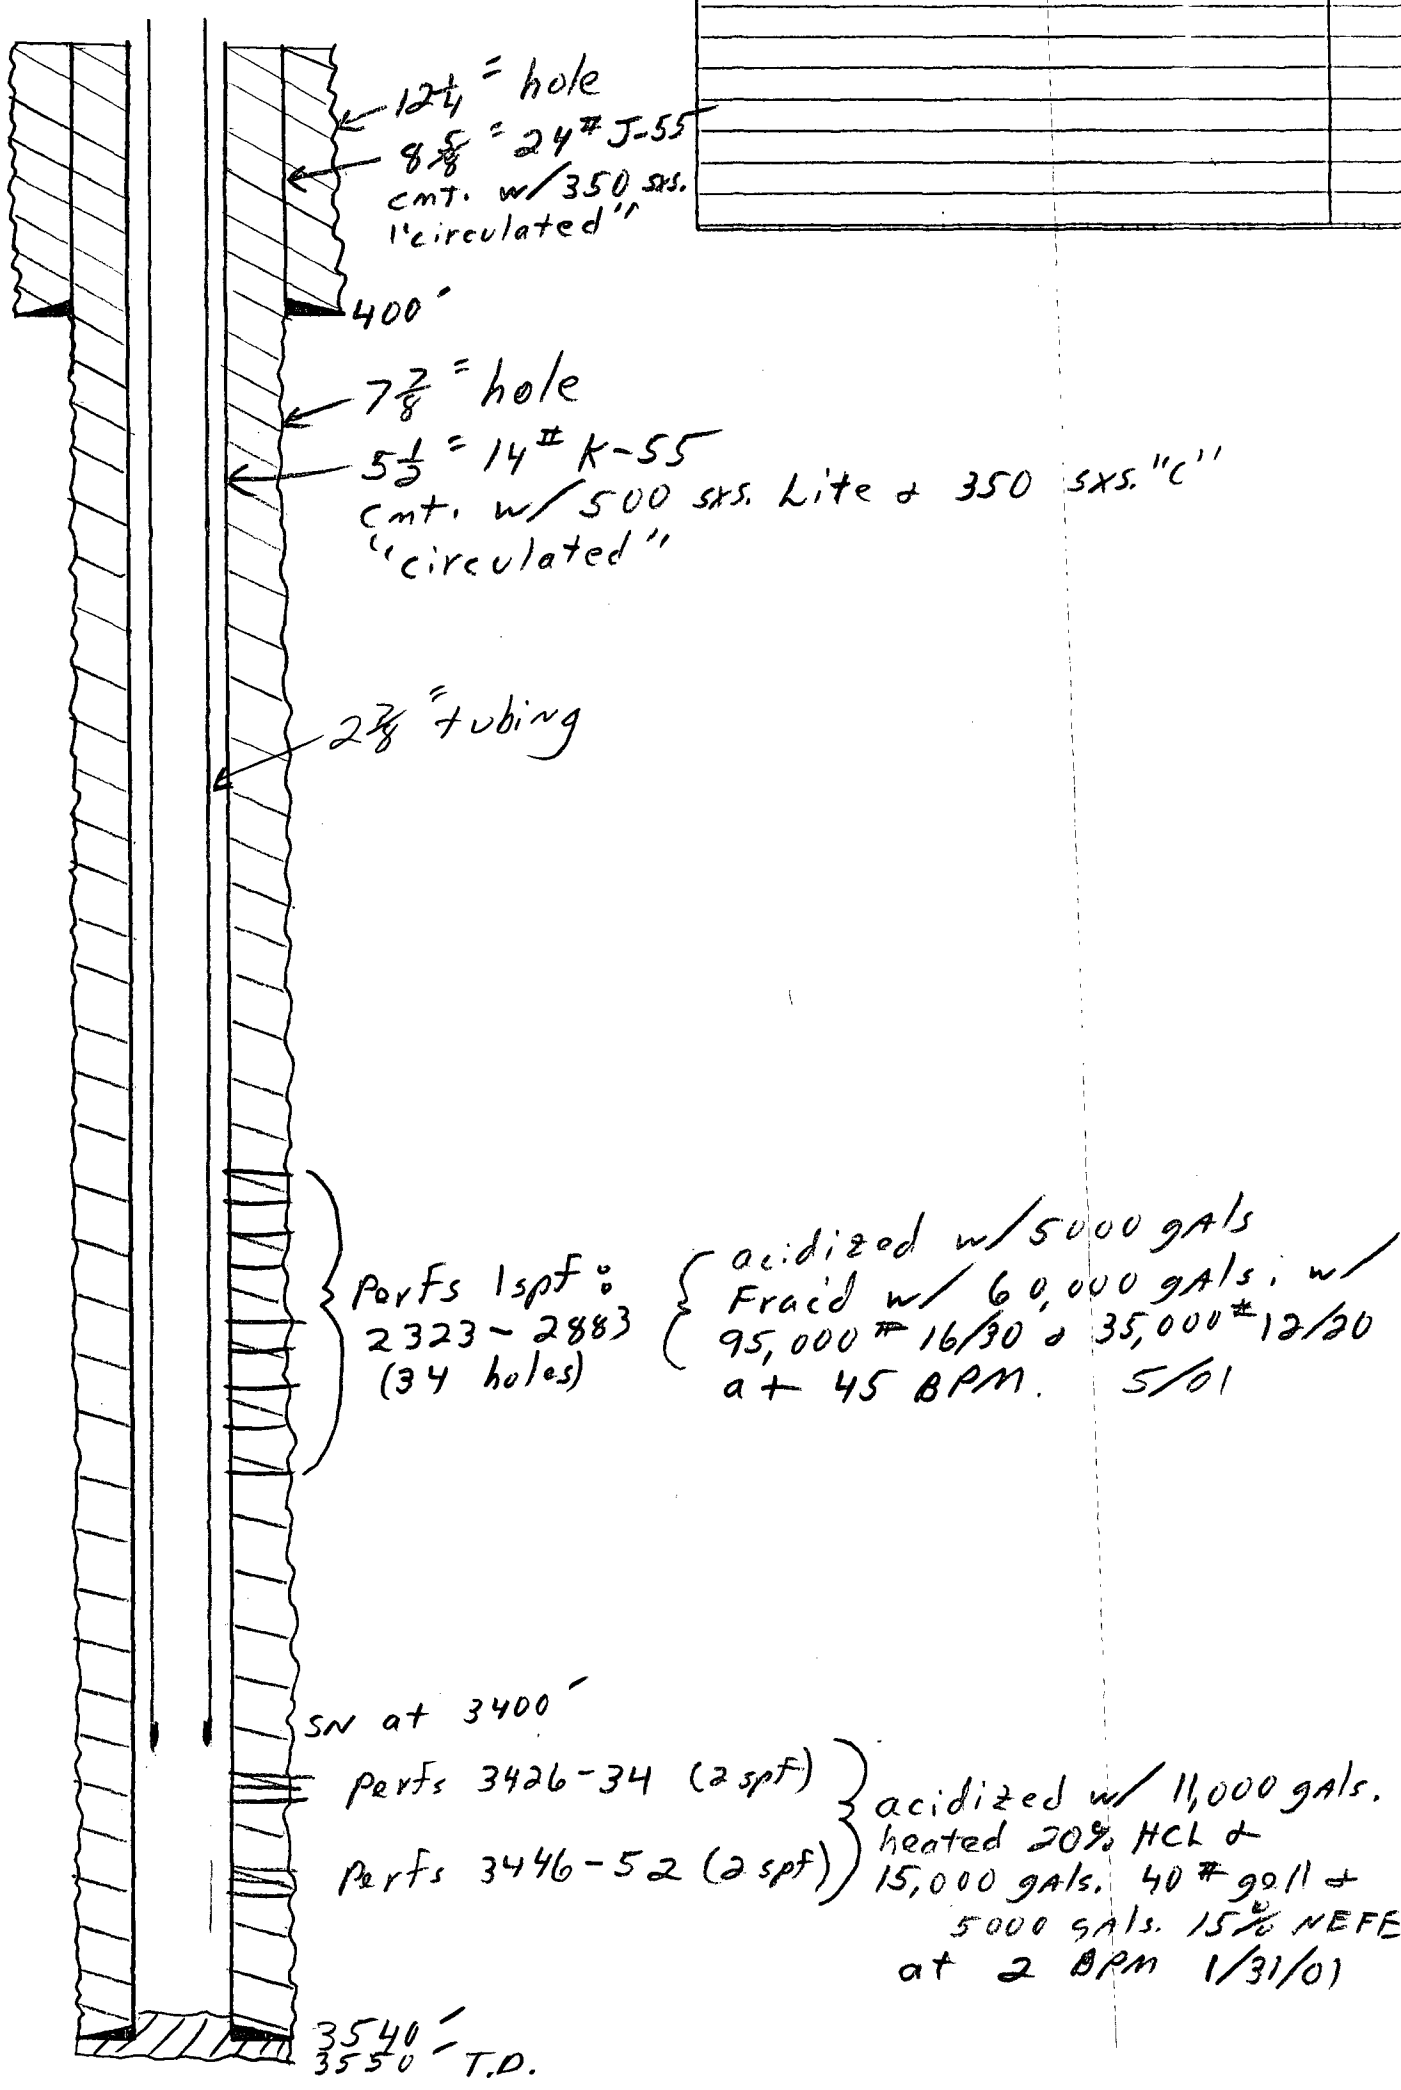 12 1/4" hole
8 5/8" 24# J-55
cmt. w/ 350 sxs.
"circulated"
400'
7 7/8" hole
5 1/2" 14# K-55
cmt. w/ 500 sxs. Lite & 350 sxs. "C"
"circulated"
2 7/8" tubing
Perfs 1spf:
2323-2883
(34 holes)
acidized w/ 5000 gals
Frac'd w/ 60,000 gals. w/
95,000# 16/30 & 35,000# 12/20
at 45 BPM. 5/01
SN at 3400'
Perfs 3426-34 (2 spf)
Perfs 3446-52 (2 spf)
acidized w/ 11,000 gals.
heated 20% HCL &
15,000 gals. 40# gell &
5000 gals. 15% NEFE
at 2 BPM 1/31/01
3540'
3550' T.D.